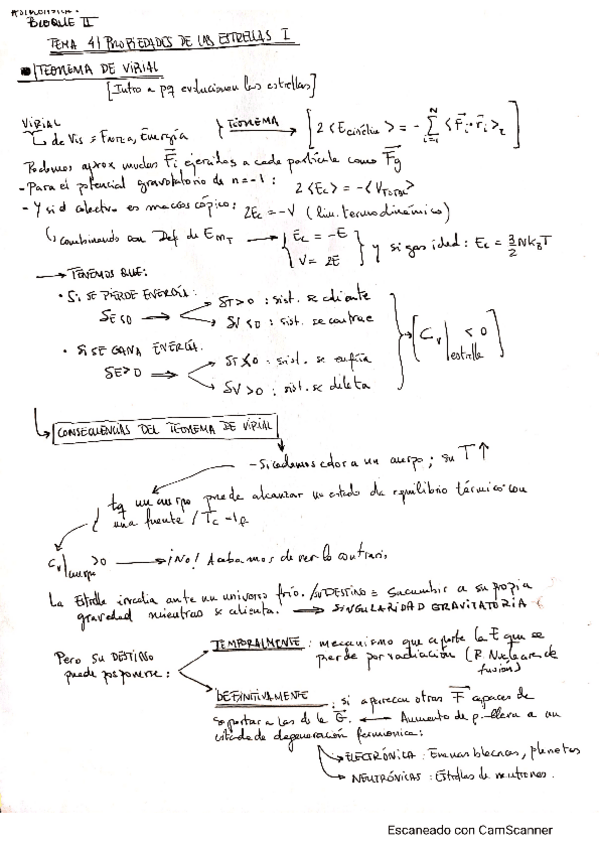 ASTROFÍSICA
BLOQUE II
TEMA 4 | PROPIEDADES DE LAS ESTRELLAS I
TEOREMA DE VIRIAL
[Intro a pq evolucionan las estrellas]
VIRIAL
↳ de Vis ≡ Fuerza, Energía } TEOREMA → [2 <E cinética> = - Σ_{i=1}^{N} <F⃗i · r⃗i>_t]
Podemos aprox muchas F⃗i ejercidas a cada partícula como F⃗g
- Para el potencial gravitatorio de n=-1 : 2<Ec> = -<V_TOTAL>
- Y si el colectivo es macroscópico: 2Ec = -V (lim. termodinámico)
↳ combinando con Def de Em_T → { Ec = -E
V = 2E } y si gas ideal: Ec = 3/2 N k_B T
→ TENEMOS QUE:
• SI SE PIERDE ENERGÍA:
δE<0 ⟹ δT>0 : sist. se calienta
δV<0 : sist. se contrae
• SI SE GANA ENERGÍA.
δE>0 ⟹ δT<0 : sist. se enfría
δV>0 : sist. se dilata
→ [C_v|estrella < 0]
↳ CONSECUENCIAS DEL TEOREMA DE VIRIAL
- Si cedemos calor a un cuerpo ; su T↑
tq un cuerpo puede alcanzar un estado de equilibrio térmico con
una fuente /
C_v|cuerpo >0 → ¡No! Acabamos de ver lo contrario.
La Estrella irradia ante un universo frío. / su DESTINO ≡ Sucumbir a su propia
gravedad mientras se calienta. → SINGULARIDAD GRAVITATORIA
Pero su DESTINO
puede posponerse :
TEMPORALMENTE : mecanismo que aporte la E que se
pierde por radiación (R. Nucleares de
fusión)
DEFINITIVAMENTE : si aparecen otras F⃗ capaces de
soportar a las de la G⃗. ← Aumento de ρ lleva a un
estado de degeneración fermiónica:
→ ELECTRÓNICA : Enanas blancas, planetas
→ NEUTRÓNICAS : Estrellas de neutrones.
Escaneado con CamScanner